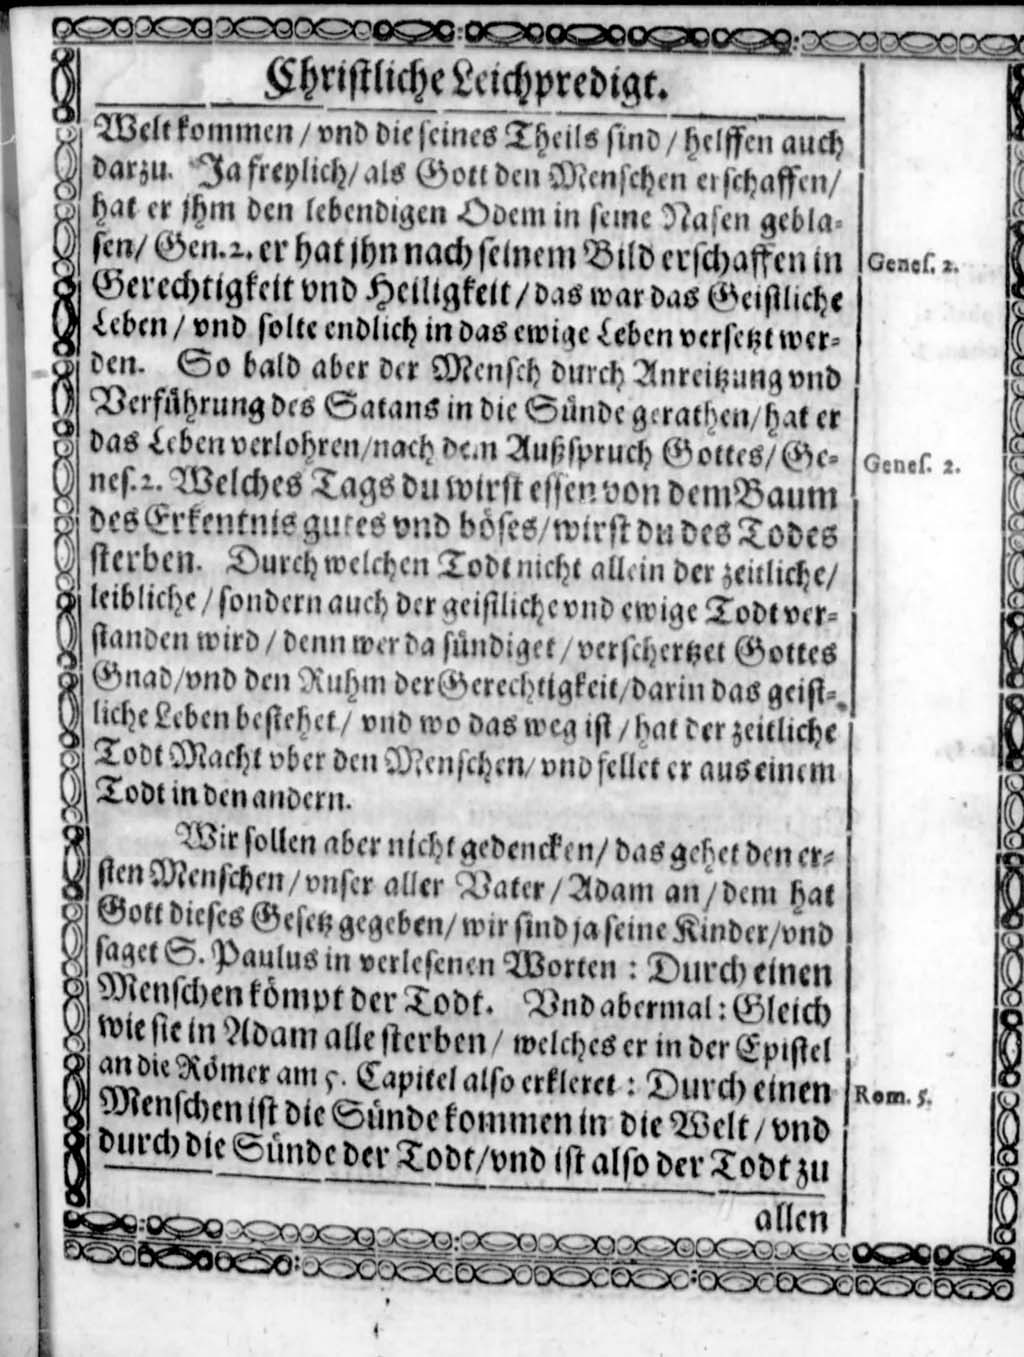 Christliche Leichpredigt.
Welt kommen / vnd die seines Theils sind / helffen auch
darzu. Ja freylich / als Gott den Menschen erschaffen /
hat er jhm den lebendigen Odem in seine Nasen gebla-
sen / Gen. 2. er hat jhn nach seinem Bild erschaffen in
Gerechtigkeit vnd Heiligkeit / das war das Geistliche
Leben / vnd solte endlich in das ewige Leben versetzt wer-
den. So bald aber der Mensch durch Anreitzung vnd
Verführung des Satans in die Sünde gerathen / hat er
das Leben verlohren / nach dem Außspruch Gottes / Ge-
nes. 2. Welches Tags du wirst essen von dem Baum
des Erkentnis gutes vnd böses / wirst du des Todes
sterben. Durch welchen Todt nicht allein der zeitliche /
leibliche / sondern auch der geistliche vnd ewige Todt ver-
standen wird / denn wer da sündiget / verschertzet Gottes
Gnad / vnd den Ruhm der Gerechtigkeit / darin das geist-
liche Leben bestehet / vnd wo das weg ist / hat der zeitliche
Todt Macht vber den Menschen / vnd fellet er aus einem
Todt in den andern.
Wir sollen aber nicht gedencken / das gehet den er-
sten Menschen / vnser aller Vater / Adam an / dem hat
Gott dieses Gesetz gegeben / wir sind ja seine Kinder / vnd
saget S. Paulus in verlesenen Worten : Durch einen
Menschen kömpt der Todt. Vnd abermal : Gleich
wie sie in Adam alle sterben / welches er in der Epistel
an die Römer am 5. Capitel also erkleret : Durch einen
Menschen ist die Sünde kommen in die Welt / vnd
durch die Sünde der Todt / vnd ist also der Todt zu
allen
Genes. 2.
Genes. 2.
Rom. 5.